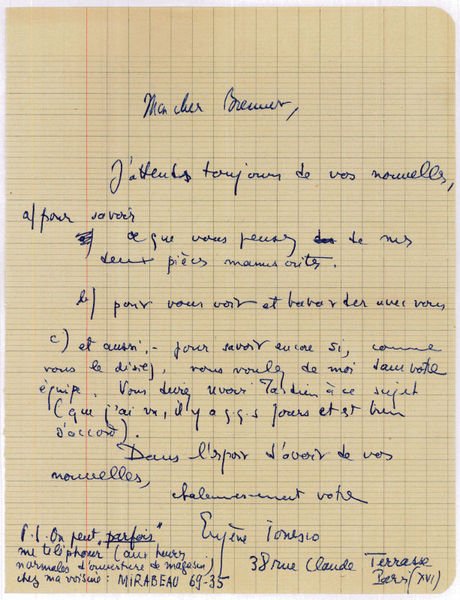 Mon cher Brenner,
J'attends toujours de vos nouvelles,
a) pour savoir
ce que vous pensez de mes
deux pièces manuscrites.
b) pour vous voir et bavarder avec vous
c) et aussi, - pour savoir encore si, comme
vous le disiez, vous voulez de moi dans votre
équipe. Vous deviez revoir Tardieu à ce sujet
(que j'ai vu, il y a q.q.s jours et est bien
d'accord).
Dans l'espoir d'avoir de vos
nouvelles,
chaleureusement votre
Eugène Ionesco
38 rue Claude Terrasse
Paris (XVI)
P.S. On peut "parfois"
me téléphoner (aux heures
normales d'ouverture de magasin)
chez ma voisine : MIRABEAU 69-35